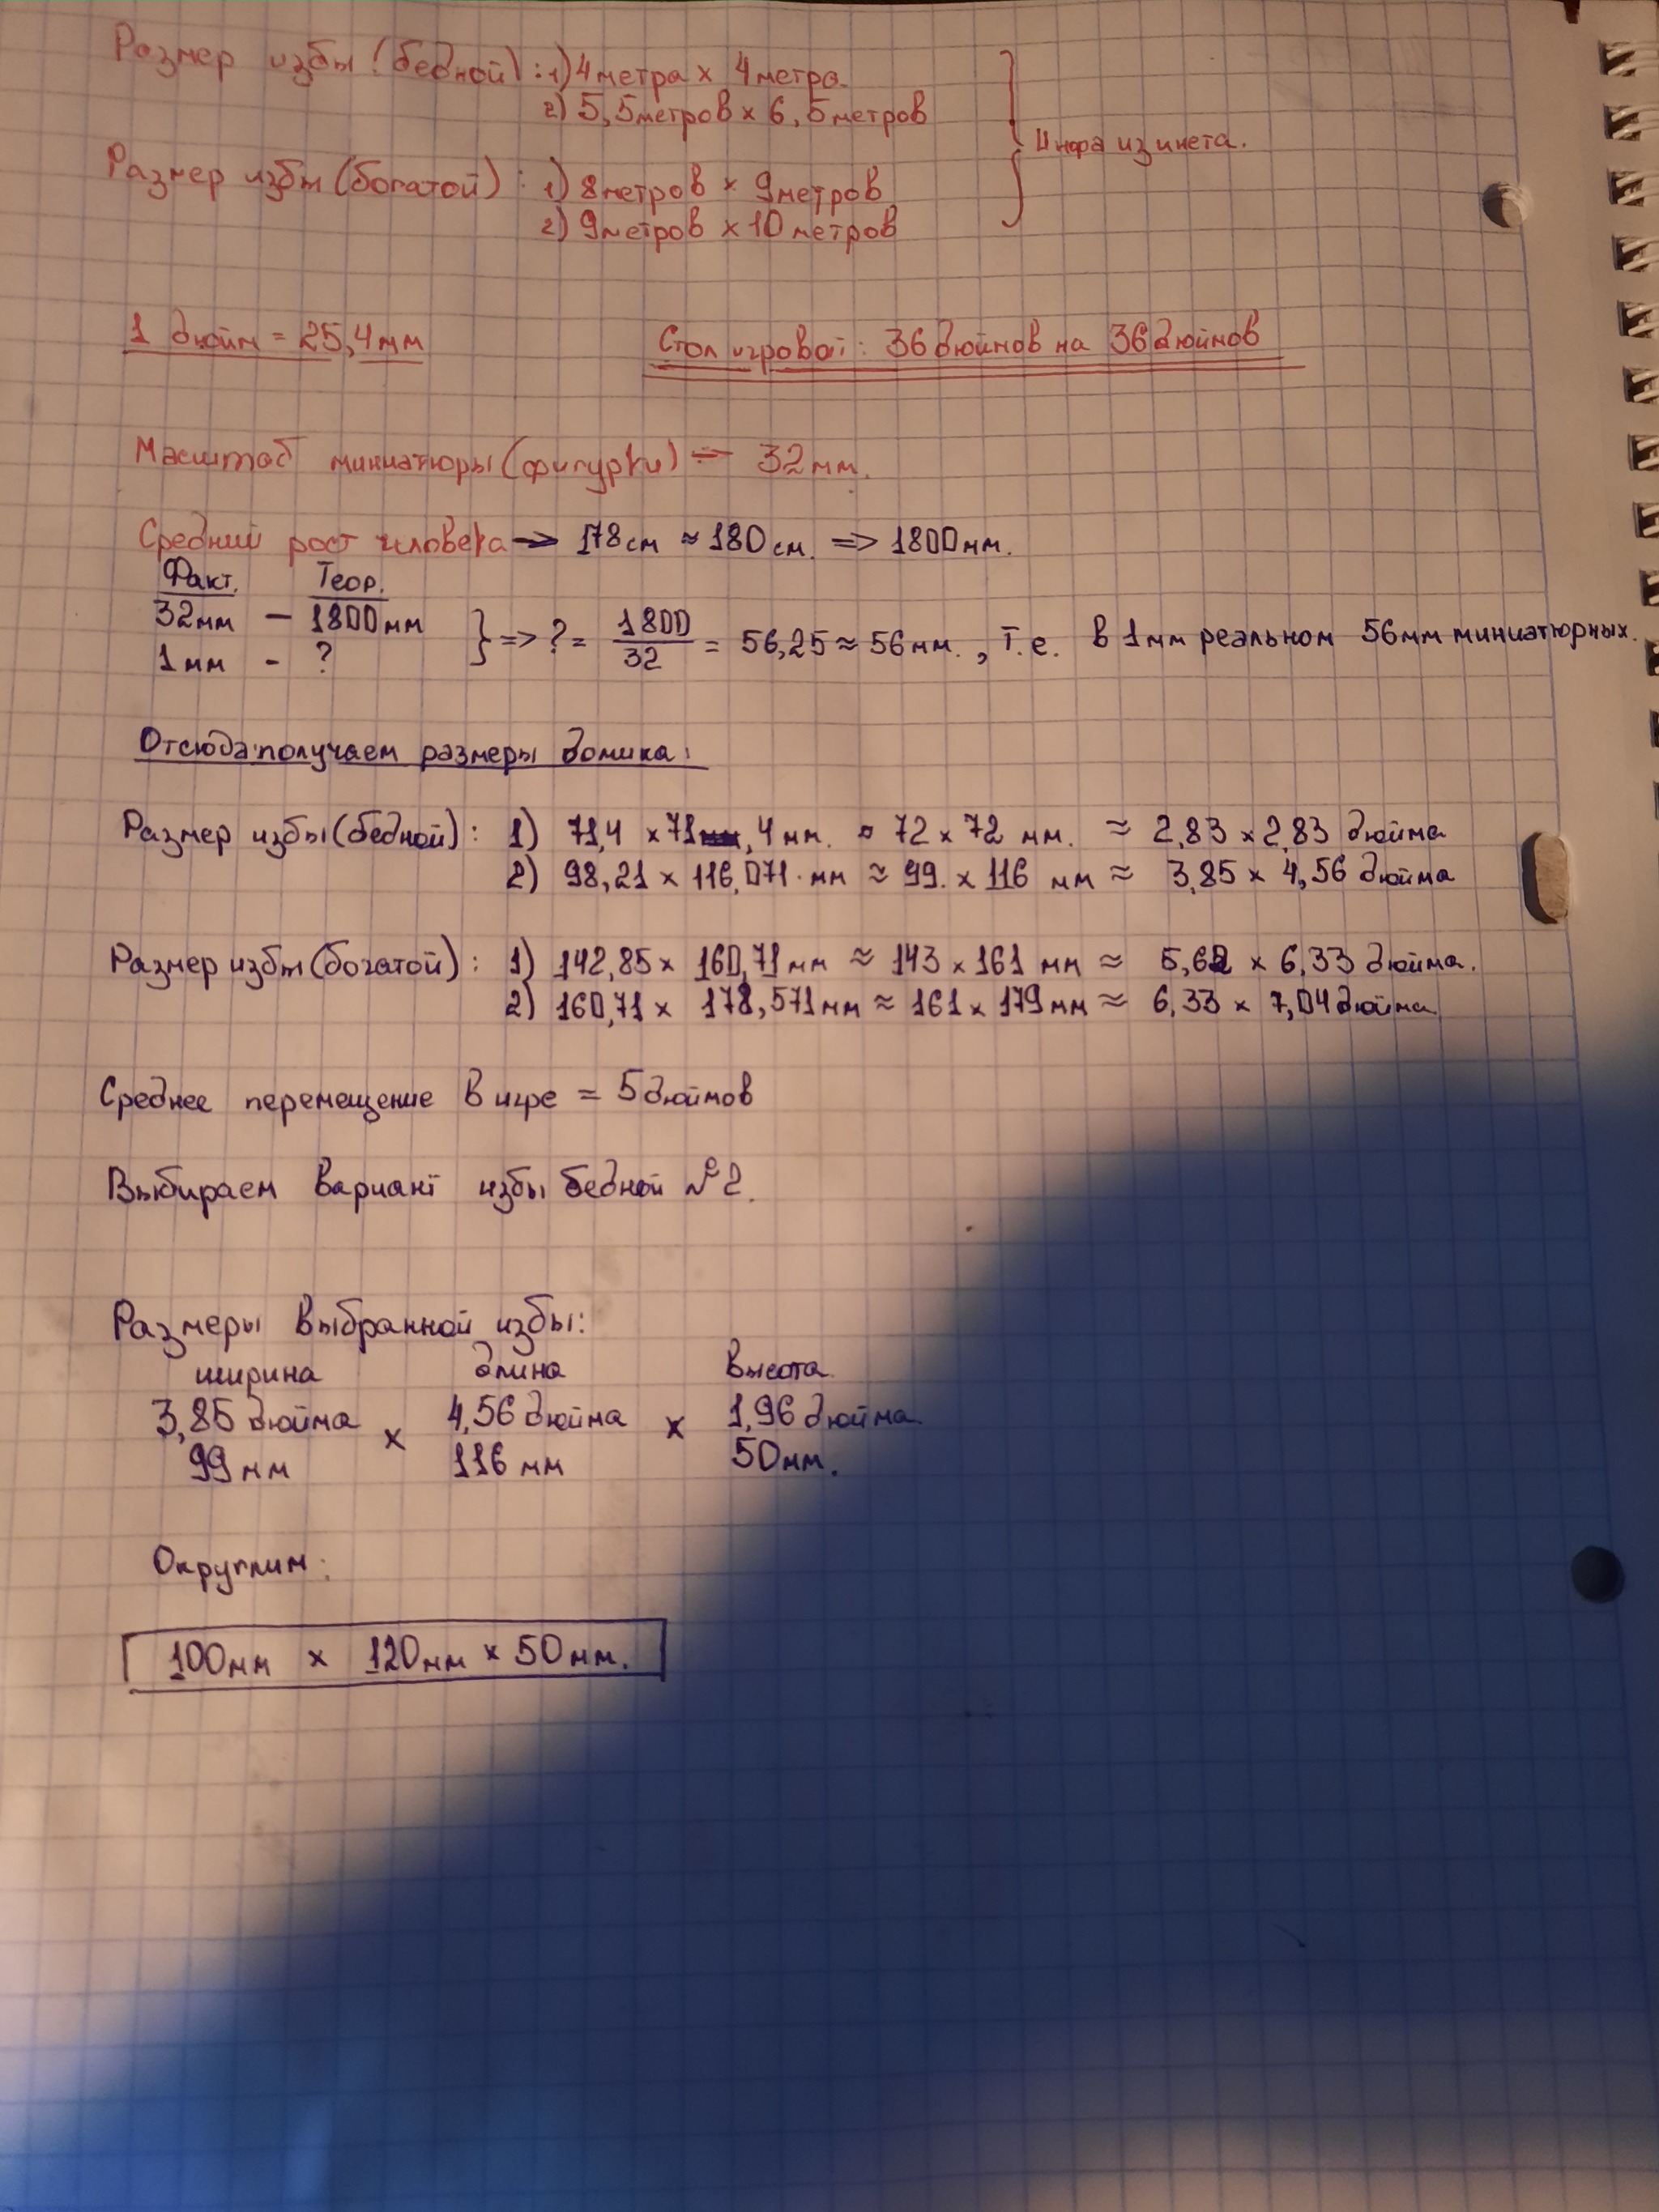 Размер избы (бедной): 1) 4 метра х 4 метра.
2) 5,5 метров х 6,5 метров
Инфа из инета.
Размер избы (богатой): 1) 8 метров х 9 метров
2) 9 метров х 10 метров
1 дюйм = 25,4 мм
Стол игровой: 36 дюймов на 36 дюймов
Масштаб миниатюры (фигурки) = 32 мм.
Средний рост человека → 178 см ≈ 180 см. => 1800 мм.
Факт. Теор.
32 мм — 1800 мм
1 мм - ?
} => ? = 1800/32 = 56,25 ≈ 56 мм., т.е. в 1 мм реальном 56 мм миниатюрных.
Отсюда получаем размеры домика:
Размер избы (бедной): 1) 71,4 х 71,4 мм. 72 х 72 мм. ≈ 2,83 х 2,83 дюйма
2) 98,21 х 116,071 мм ≈ 99 х 116 мм ≈ 3,85 х 4,56 дюйма
Размер избы (богатой): 1) 142,85 х 160,71 мм ≈ 143 х 161 мм ≈ 5,62 х 6,33 дюйма.
2) 160,71 х 178,571 мм ≈ 161 х 179 мм ≈ 6,33 х 7,04 дюйма
Среднее перемещение в игре = 5 дюймов
Выбираем вариант избы бедной №2.
Размеры выбранной избы:
ширина длина высота
3,85 дюйма х 4,56 дюйма х 1,96 дюйма.
99 мм 116 мм 50 мм.
Округлим:
100 мм х 120 мм х 50 мм.